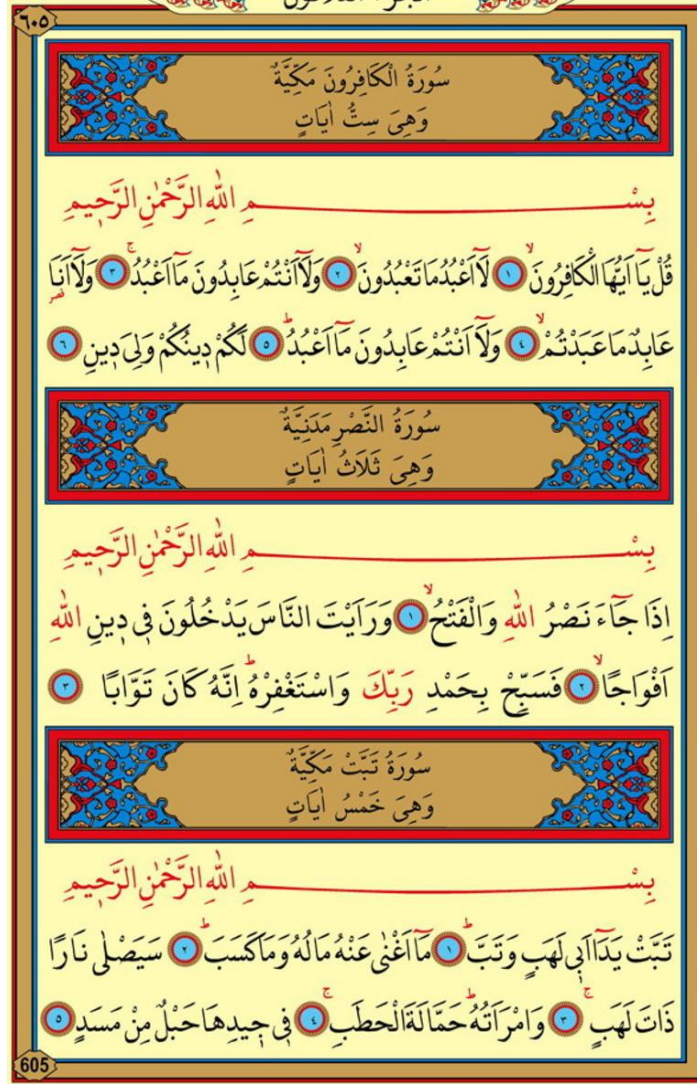 الجزء الثلاثون
٦٠٥
سُورَةُ الْكَافِرُونَ مَكِّيَّةٌ
وَهِىَ سِتُّ اٰيَاتٍ
بِسْمِ اللّٰهِ الرَّحْمٰنِ الرَّحِيمِ
قُلْ يَٓا اَيُّهَا الْكَافِرُونَۙ ١ لَٓا اَعْبُدُ مَا تَعْبُدُونَۙ ٢ وَلَٓا اَنْتُمْ عَابِدُونَ مَٓا اَعْبُدُۚ ٣ وَلَٓا اَنَا۬
عَابِدٌ مَا عَبَدْتُمْۙ ٤ وَلَٓا اَنْتُمْ عَابِدُونَ مَٓا اَعْبُدُۜ ٥ لَكُمْ دِينُكُمْ وَلِىَ دِينِ ٦
سُورَةُ النَّصْرِ مَدَنِيَّةٌ
وَهِىَ ثَلَاثُ اٰيَاتٍ
بِسْمِ اللّٰهِ الرَّحْمٰنِ الرَّحِيمِ
اِذَا جَٓاءَ نَصْرُ اللّٰهِ وَالْفَتْحُۙ ١ وَرَاَيْتَ النَّاسَ يَدْخُلُونَ فِى دِينِ اللّٰهِ
اَفْوَاجًاۙ ٢ فَسَبِّحْ بِحَمْدِ رَبِّكَ وَاسْتَغْفِرْهُۜ اِنَّهُ كَانَ تَوَّابًا ٣
سُورَةُ تَبَّتْ مَكِّيَّةٌ
وَهِىَ خَمْسُ اٰيَاتٍ
بِسْمِ اللّٰهِ الرَّحْمٰنِ الرَّحِيمِ
تَبَّتْ يَدَٓا اَبِى لَهَبٍ وَتَبَّۜ ١ مَٓا اَغْنٰى عَنْهُ مَالُهُ وَمَا كَسَبَۜ ٢ سَيَصْلٰى نَارًا
ذَاتَ لَهَبٍۚ ٣ وَامْرَاَتُهُۜ حَمَّالَةَ الْحَطَبِۚ ٤ فِى جِيدِهَا حَبْلٌ مِنْ مَسَدٍ ٥
605